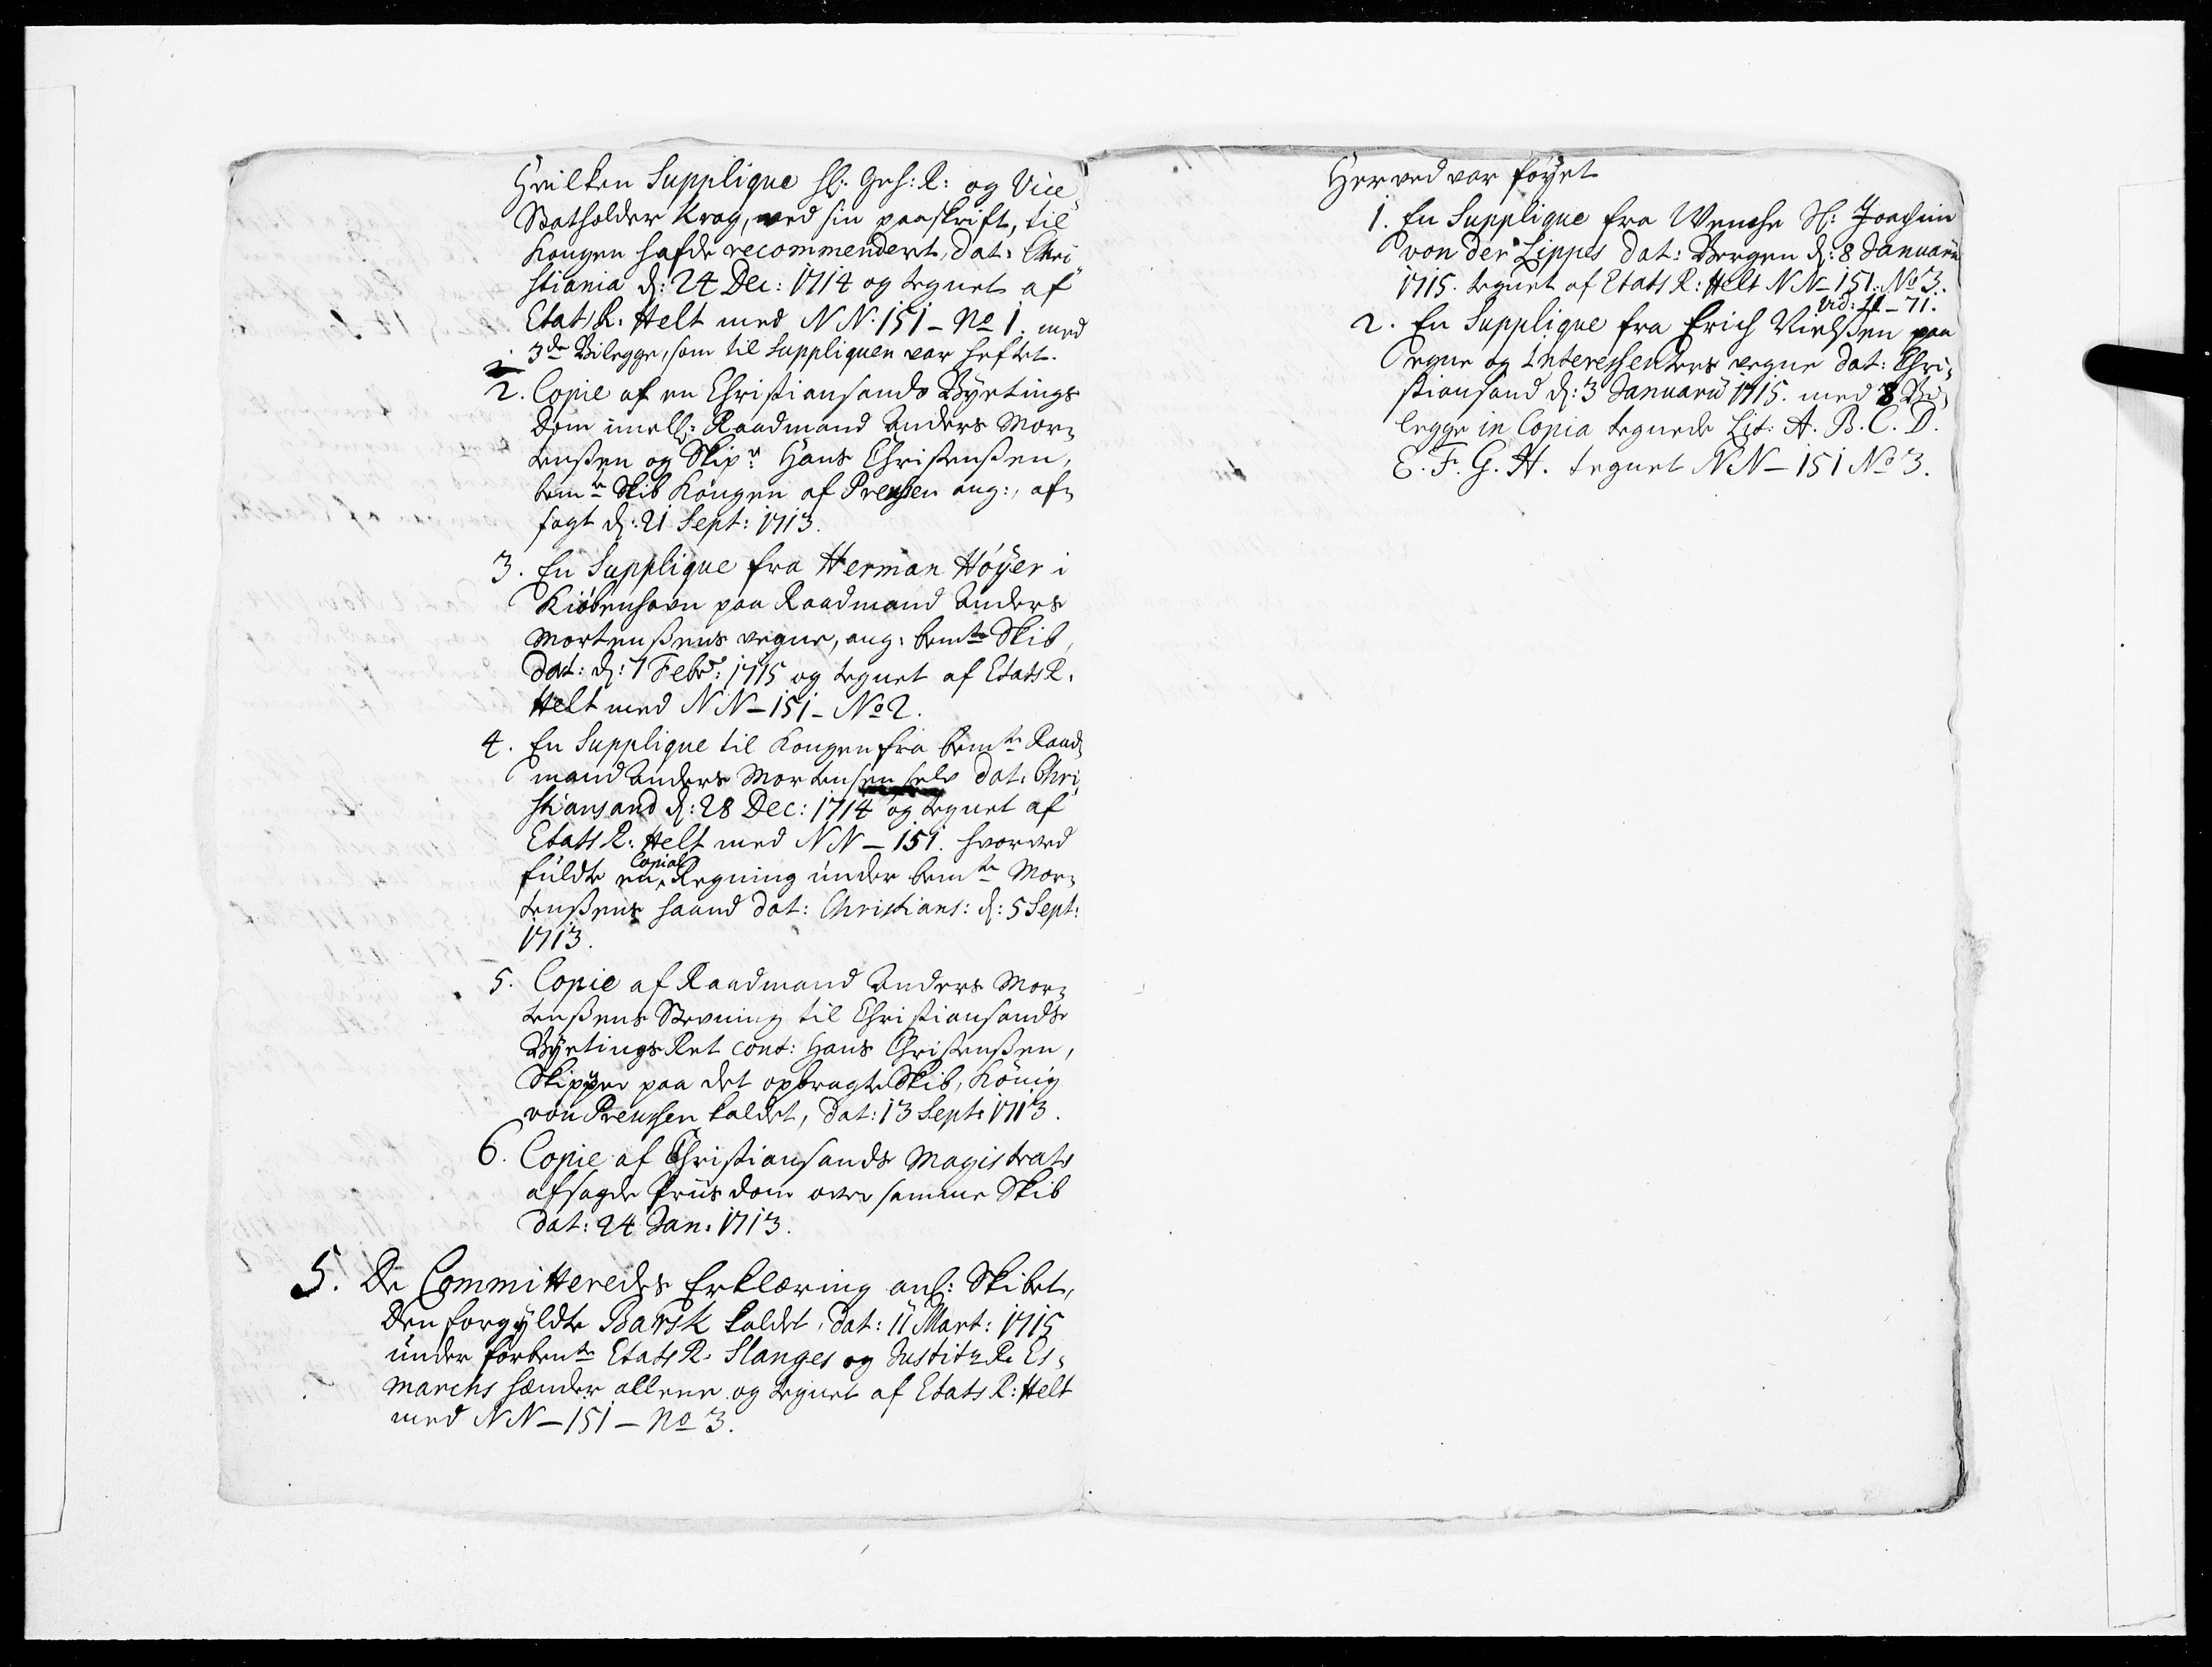 Hvilken Supplique Hl. Geh: R: og Vice
Statholder Krag, ved sin paaskrift, til
Kongen hafde recommendert, dat: Chri
stiania d: 24 Dec: 1714 og tegnet af
Etats R: Helt med NN. 151 - No 1. med
3de Bilegge, som til Suppliquen var heftet.
2. Copie af en Christiansands Byetings
Dom imell: Raadmand Anders Mor-
tenßen og Skipr: Hans Christenßen,
bemte Skib Kongen af Preussen ang:, af-
sagt d: 21 Sept: 1713.
3. En Supplique fra Herman Höyer i
Kiöbenhavn paa Raadmand Anders
Mortenßens vegne, ang: bemte Skib,
Dat: d: 7 Febr: 1715 og tegnet af Etats R.
Helt med NN - 151 - No 2.
4. En Supplique til Kongen fra bemte Raad
mand Anders Mortensen selv dat: Chri
stiansand d: 28 Dec: 1714 og tegnet af
Etats R: Helt med NN - 151. hvorved
fuldte en Copial Regning under bemte Mor-
tenßens haand dat: Christians: d: 5 Sept:
1713.
5. Copie af Raadmand Anders Mor-
tenßens Stevning til Christiansands
Byetings Ret cont: Hans Christenßen,
Skipper paa det opbragte Skib, König
von Preussen kaldet, dat: 13 Sept: 1713.
6. Copie af Christiansands Magistrats
afsagde Priisdom over samme Skib
dat: 24 Jan: 1713.
5. De Committeredes Erklæring anl: Skibet,
Den forgyldte Barsk kaldet, dat: 11 Mart: 1715
under forbente Etats R. Slanges og Justitz R. Es-
marchs hænder allene og tegnet af Etats R: Helt
med NN - 151 - No 3.
Herved var föyet
1. En Supplique fra Wenche Sl: Joachim
von der Lippes dat: Bergen d: 8 Januarii
1715. tegnet af Etats R: Helt NN - 151. No 3.
vid: 11 - 71.
2. En Supplique fra Erich Nielßen paa
egne og Interessenters vegne dat: Chri-
stiansand d: 3 Januarii 1715. med 8 Bi-
legge in Copia tegnede Lit: A. B. C. D.
E. F. G. H. tegnet NN - 151 No 3.